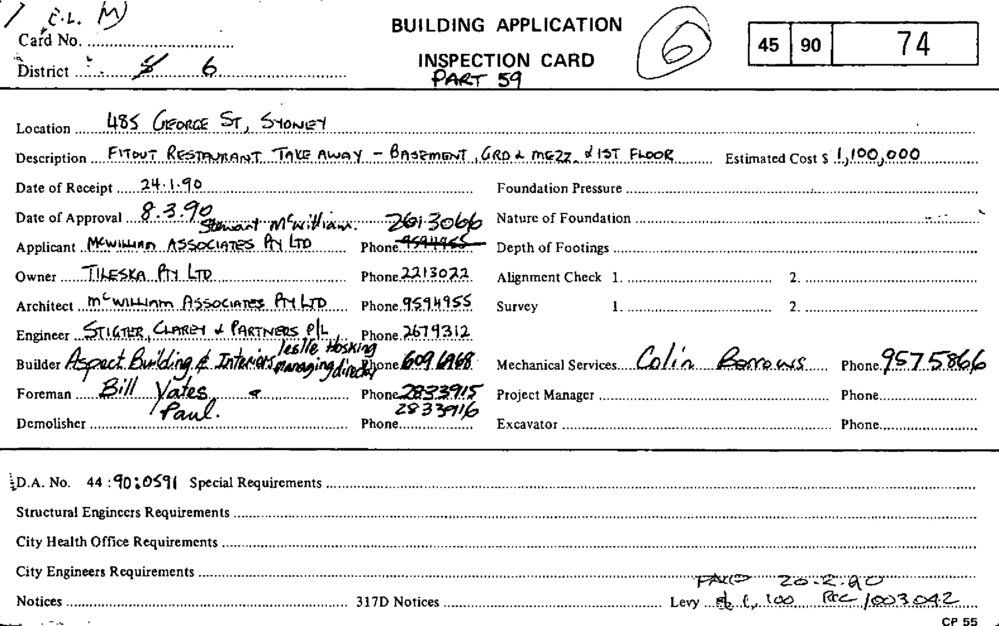 E.L. (M)
Card No.
District 6
BUILDING APPLICATION
INSPECTION CARD
PART 59
6
45 90 74
Location 485 GEORGE ST, SYDNEY
Description FITOUT RESTAURANT TAKE AWAY - BASEMENT, GRD & MEZZ. & 1ST FLOOR Estimated Cost $ 1,100,000
Date of Receipt 24.1.90 Foundation Pressure
Date of Approval 8.3.90 Nature of Foundation
Stewart McWilliam. 2613066
Applicant MCWILLIAM ASSOCIATES PTY LTD Phone 9594955 Depth of Footings
Owner TILESKA PTY LTD Phone 2213022 Alignment Check 1. 2.
Architect McWILLIAM ASSOCIATES PTY LTD Phone 9594955 Survey 1. 2.
Engineer STIGTER, CLAREY & PARTNERS P/L Phone 2679312
leslie Hosking
Builder Aspect Building & Interiors managing director Phone 6096968 Mechanical Services Colin Borrows Phone 9575866
Foreman Bill Yates Phone 2833915 Project Manager Phone
Paul. 2833916
Demolisher Phone Excavator Phone
D.A. No. 44 : 90:0591 Special Requirements
Structural Engineers Requirements
City Health Office Requirements
City Engineers Requirements
PAID 20.2.90
Notices 317D Notices Levy $1,100 REC 1003042
CP 55